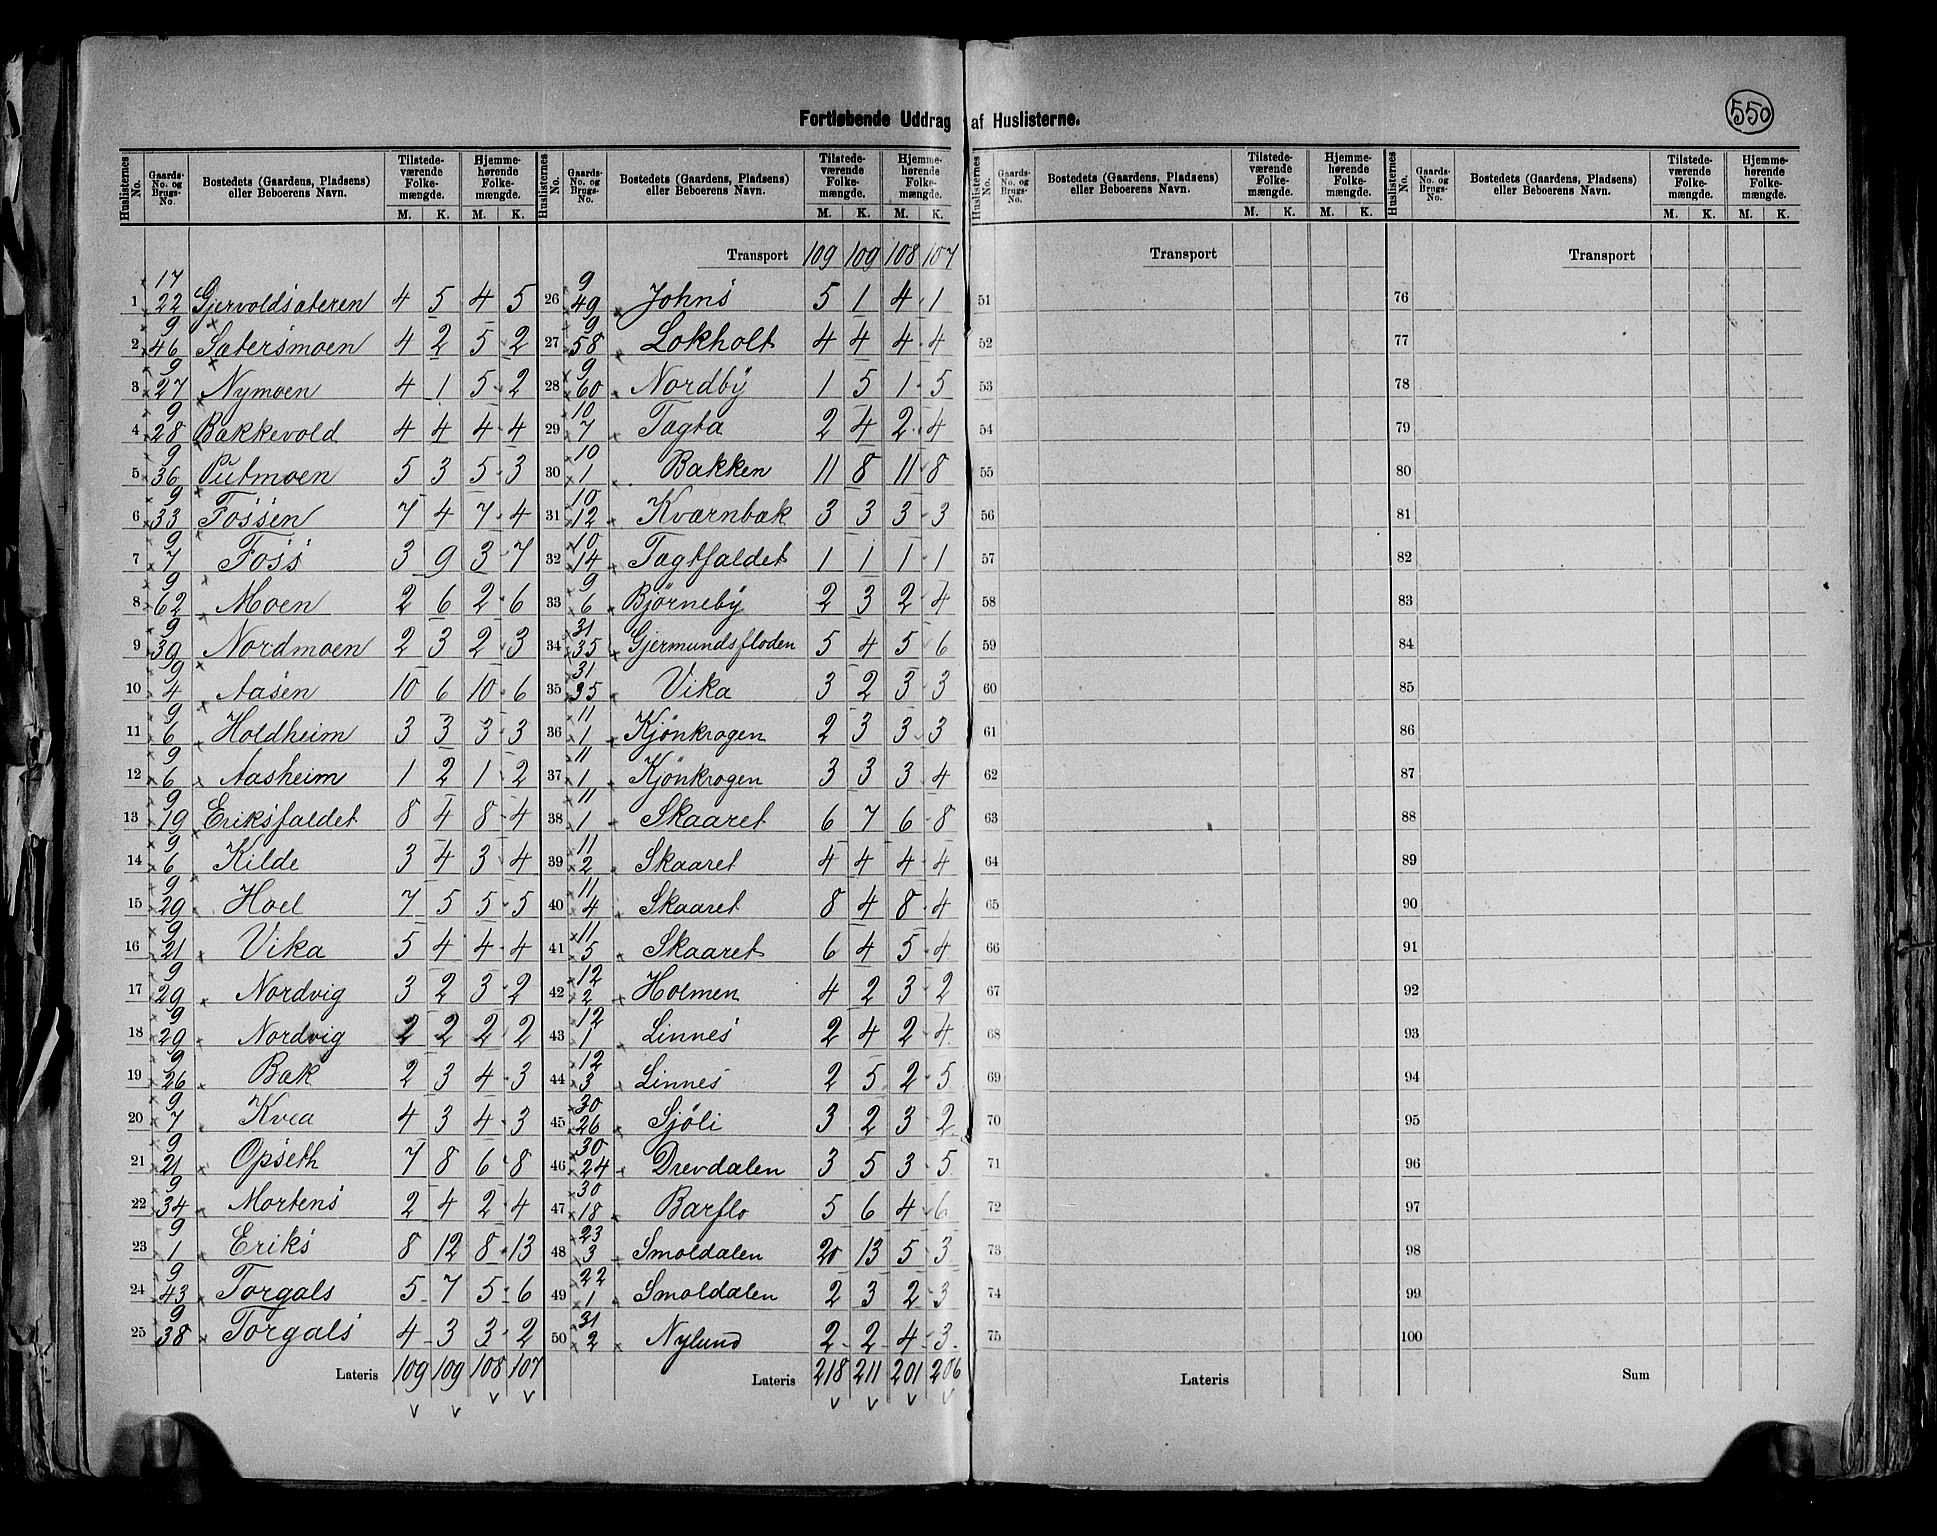 550
Fortløbende Uddrag af Huslisterne.
Huslisternes No. Gaards-No. og Brugs-No. Bostedets (Gaardens, Pladsens) eller Beboerens Navn. Tilstedeværende Folkemængde. M. K. Hjemmehørende Folkemængde. M. K.
1 17/22 Gjervoldsæteren 4 5 4 5
2 9/46 Sætersmoen 4 2 5 2
3 9/27 Nymoen 4 1 5 2
4 9/28 Bakkevold 4 4 4 4
5 9/36 Putmoen 5 3 5 3
6 9/33 Fossen 7 4 7 4
7 9/7 Foss 3 9 3 7
8 9/62 Moen 2 6 2 6
9 9/39 Nordmoen 2 3 2 3
10 9/4 Aasen 10 6 10 6
11 9/6 Holdheim 3 3 3 3
12 9/6 Aasheim 1 2 1 2
13 9/19 Eriksfaldet 8 4 8 4
14 9/6 Kilde 3 4 3 4
15 9/29 Hoel 7 5 5 5
16 9/21 Vika 5 4 4 4
17 9/29 Nordvig 3 2 3 2
18 9/29 Nordvig 2 2 2 2
19 9/26 Bak 2 3 4 3
20 9/7 Kvea 4 3 4 3
21 9/21 Opseth 7 8 6 8
22 9/34 Mortens 2 4 2 4
23 9/1 Eriks 8 12 8 13
24 9/43 Torgals 5 7 5 6
25 9/38 Torgals 4 3 3 2
Lateris 109 109 108 107
Huslisternes No. Gaards-No. og Brugs-No. Bostedets (Gaardens, Pladsens) eller Beboerens Navn. Tilstedeværende Folkemængde. M. K. Hjemmehørende Folkemængde. M. K.
Transport 109 109 108 107
26 9/49 Johns 5 1 4 1
27 9/58 Lokholt 4 4 4 4
28 9/60 Nordby 1 5 1 5
29 10/7 Tagta 2 4 2 4
30 10/1 Bakken 11 8 11 8
31 10/12 Kværnbæk 3 3 3 3
32 10/14 Tagtfaldet 1 1 1 1
33 9/6 Bjørneby 2 3 2 4
34 31/35 Gjermundsfloden 5 4 5 6
35 31/35 Vika 3 2 3 3
36 11/1 Kjönkrogen 2 3 3 3
37 11/1 Kjönkrogen 3 3 3 4
38 11/1 Skaaret 6 7 6 8
39 11/2 Skaaret 4 4 4 4
40 11/4 Skaaret 8 4 8 4
41 11/5 Skaaret 6 4 5 4
42 12/2 Holmen 4 2 3 2
43 12/1 Linnes 2 4 2 4
44 12/3 Linnes 2 5 2 5
45 30/26 Sjöli 3 2 3 2
46 30/24 Drevdalen 3 5 3 5
47 30/18 Barflo 5 6 4 6
48 23/3 Smoldalen 20 13 5 3
49 22/1 Smoldalen 2 3 2 3
50 31/2 Nylund 2 2 4 3
Lateris 218 211 201 206
Huslisternes No. Gaards-No. og Brugs-No. Bostedets (Gaardens, Pladsens) eller Beboerens Navn. Tilstedeværende Folkemængde. M. K. Hjemmehørende Folkemængde. M. K.
Transport
51
52
53
54
55
56
57
58
59
60
61
62
63
64
65
66
67
68
69
70
71
72
73
74
75
Lateris
Huslisternes No. Gaards-No. og Brugs-No. Bostedets (Gaardens, Pladsens) eller Beboerens Navn. Tilstedeværende Folkemængde. M. K. Hjemmehørende Folkemængde. M. K.
Transport
76
77
78
79
80
81
82
83
84
85
86
87
88
89
90
91
92
93
94
95
96
97
98
99
100
Sum